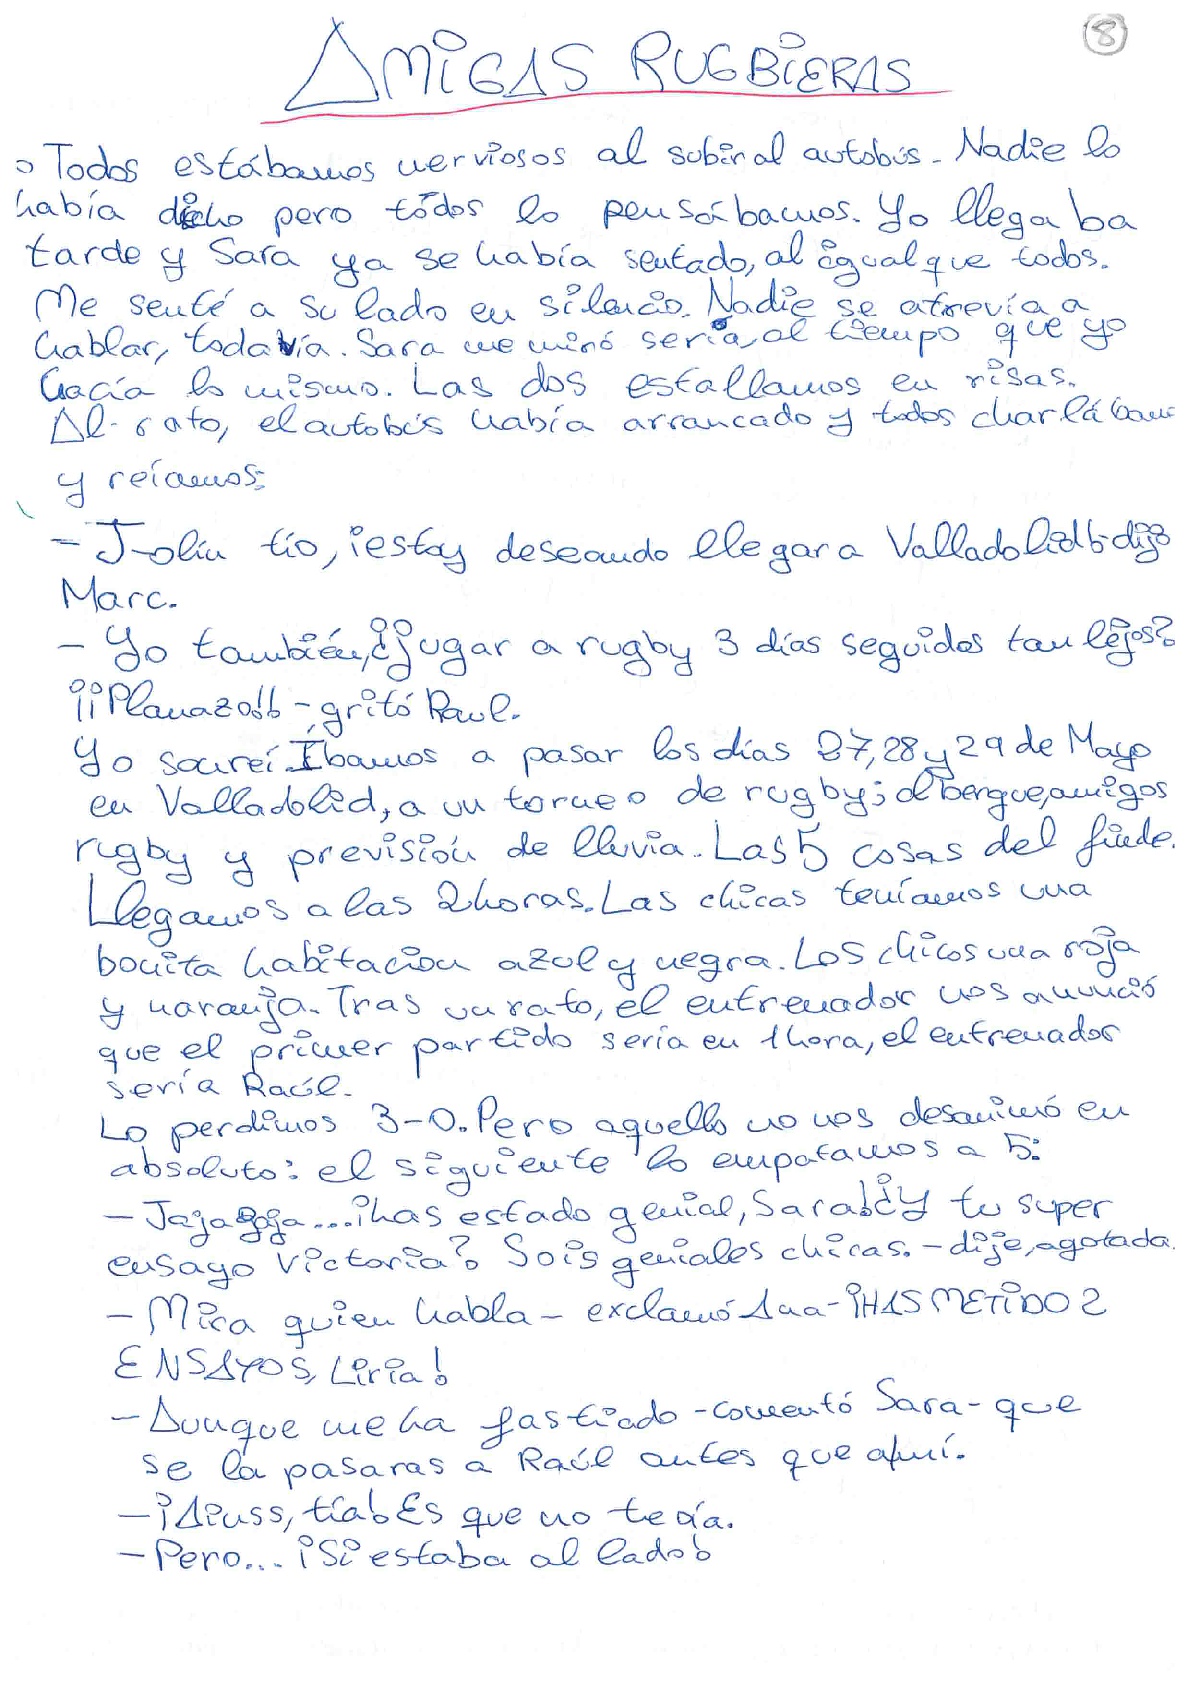 8
AMiGAS RUGBiERAS
Todos estábamos nerviosos al subir al autobús. Nadie lo
había dicho pero tódos lo pensábamos. Yo llegaba
tarde y Sara ya se había sentado, al igual que todos.
Me senté a su lado en silencio. Nadie se atrevía a
hablar, todavía. Sara me miró seria, al tiempo que yo
hacía lo mismo. Las dos estallamos en risas.
Al rato, el autobús había arrancado y todos charlábamos
y reíamos:
- Jolín tío, ¡estoy deseando llegar a Valladolid! - dijo
Marc.
- Yo también, ¿jugar a rugby 3 días seguidos tan lejos?
¡¡Planazo!! - gritó Raul.
Yo sonreí. Íbamos a pasar los días 27, 28 y 29 de Mayo
en Valladolid, a un torneo de rugby; albergue, amigos
rugby y previsión de lluvia. Las 5 cosas del finde.
Llegamos a las 2 horas. Las chicas teníamos una
bonita habitacion azul y negra. Los chicos una roja
y naranja. Tras un rato, el entrenador nos anunció
que el primer partido sería en 1 hora, el entrenador
sería Raúl.
Lo perdimos 3-0. Pero aquello no nos desanimó en
absoluto: el siguiente lo empatamos a 5:
- Jajajaja... ¡has estado genial, Sara! ¿Y tu super
ensayo Victoria? Sois geniales chicas. - dije, agotada.
- Mira quien habla - exclamó Ana - ¡HAS METIDO 2
ENSAYOS, Liria!
- Aunque me ha fastiado - comentó Sara - que
se la pasaras a Raúl antes que a mí.
- ¡Aiuss, tía! Es que no te oía.
- Pero... ¡Si estaba al lado!